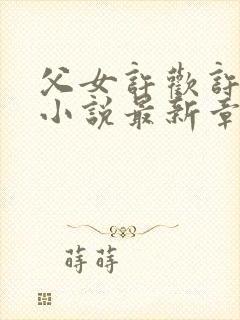 父女許歡許
小說最新章
蒔蒔